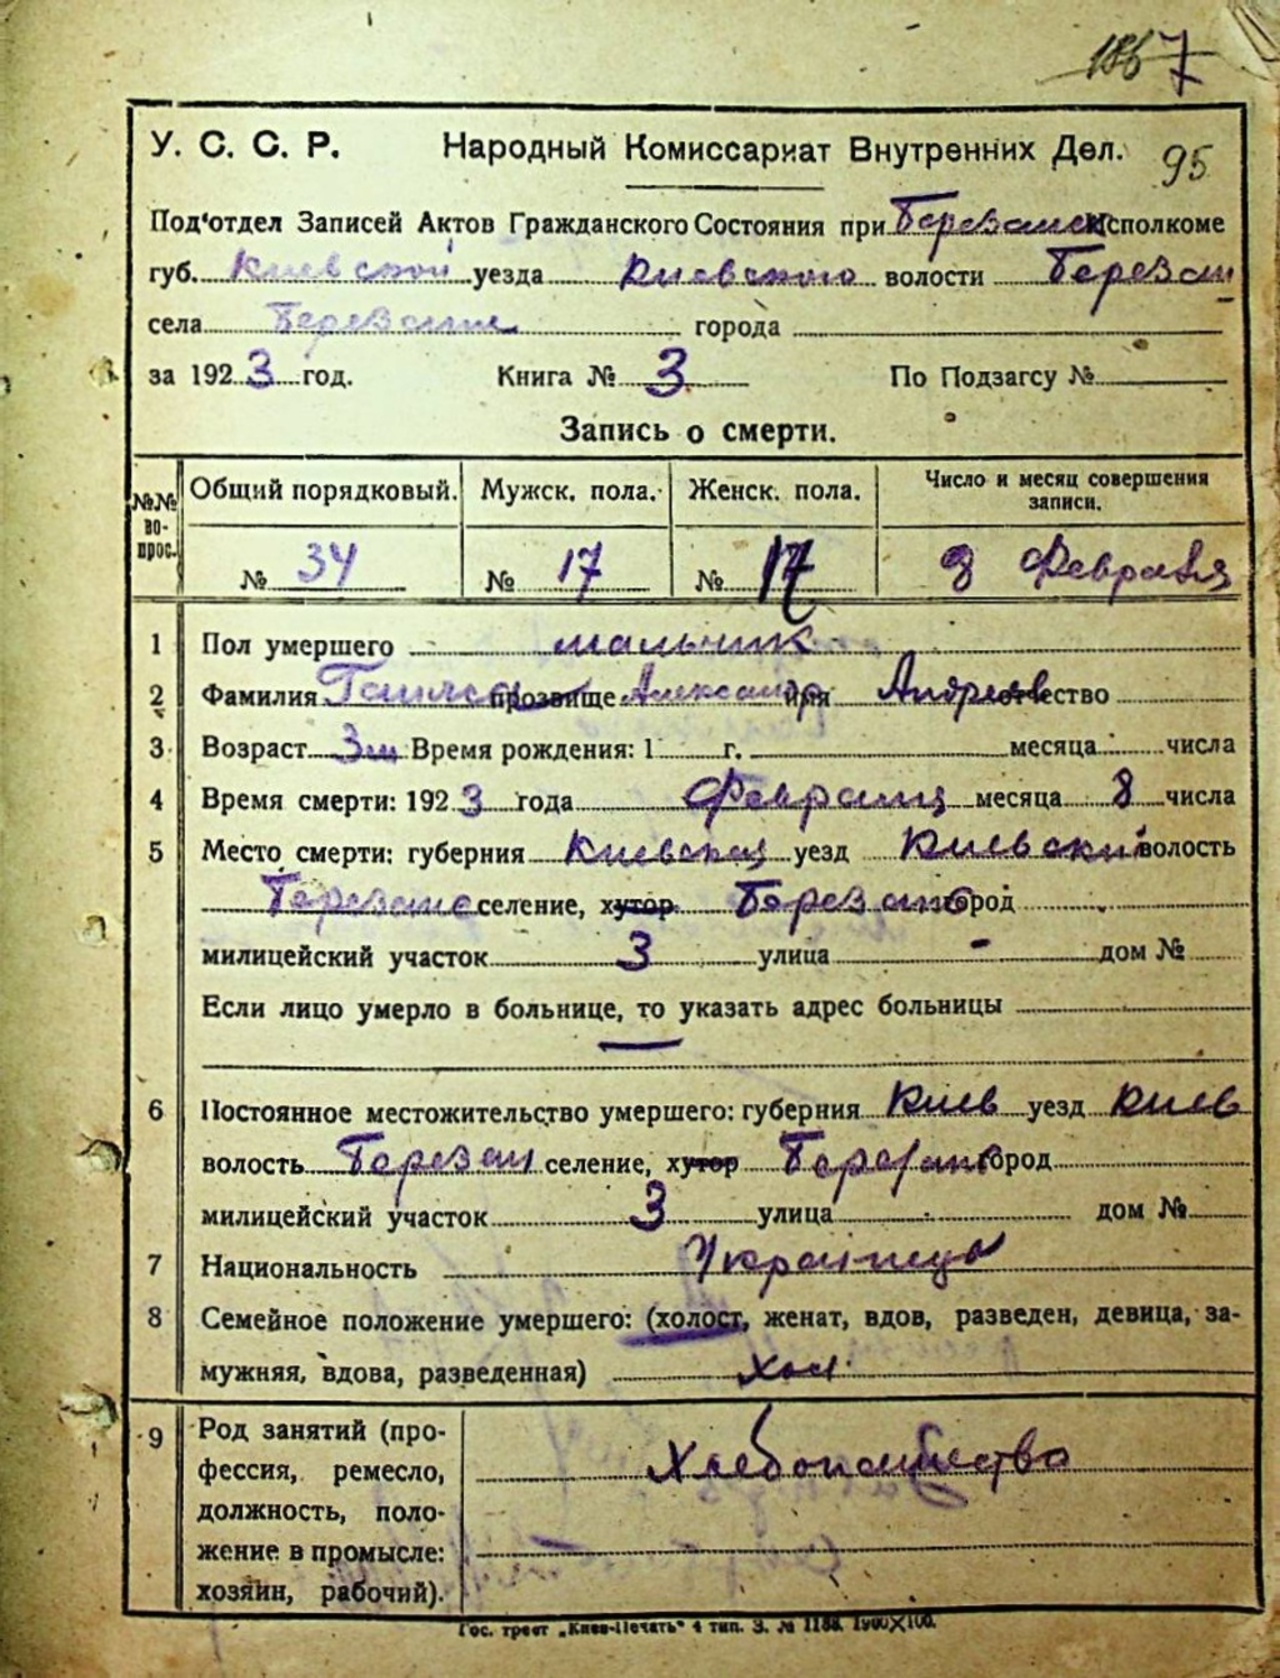 1867
У. С. С. Р. Народный Комиссариат Внутренних Дел. 95
Под'отдел Записей Актов Гражданского Состояния при Березанск Исполкоме
губ. Киевской уезда Киевского волости Березан
села Березани города
за 1923 год. Книга № 3 По Подзагсу №
Запись о смерти.
№№ вопрос. Общий порядковый. Мужск. пола. Женск. пола. Число и месяц совершения записи.
№ 34 № 17 № 17 8 Февраля
1 Пол умершего мальчик
2 Фамилия прозвище Александр имя Андреев отчество
3 Возраст 3 Время рождения: 1 г. месяца числа
4 Время смерти: 1923 года Февраля месяца 8 числа
5 Место смерти: губерния Киевская уезд Киевский волость
Березань селение, хутор Березань город
милицейский участок 3 улица - дом №
Если лицо умерло в больнице, то указать адрес больницы
—
6 Постоянное местожительство умершего: губерния Киев уезд Киев
волость Березан селение, хутор Березань город
милицейский участок 3 улица дом №
7 Национальность Украинцы
8 Семейное положение умершего: (холост, женат, вдов, разведен, девица, за-
мужняя, вдова, разведенная) хол
9 Род занятий (про-
фессия, ремесло, Хлебопашество
должность, поло-
жение в промысле:
хозяин, рабочий).
Гос. трест „Киев-Печать" 4 тип. З. № 1188. 1900X100.